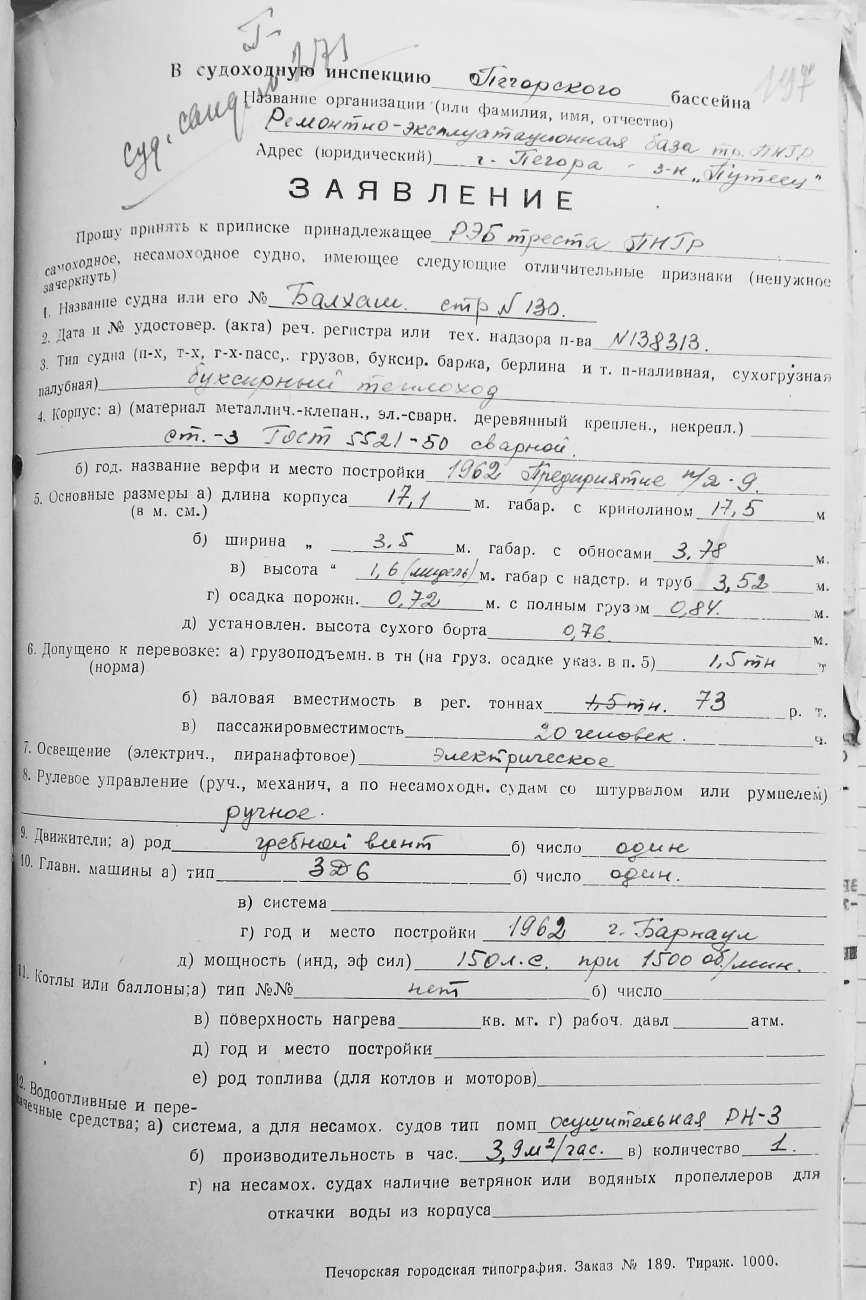 197
В судоходную инспекцию Печорского бассейна
Название организации (или фамилия, имя, отчество)
Ремонтно-эксплуатационная база тр. ПНГР
Адрес (юридический) г. Печора з-н „Путеец"
ЗАЯВЛЕНИЕ
Прошу принять к приписке принадлежащее РЭБ треста ПНГР
самоходное, несамоходное судно, имеющее следующие отличительные признаки (ненужное
зачеркнуть)
1. Название судна или его № Балхаш. стр N 130.
2. Дата и № удостовер. (акта) реч. регистра или тех. надзора п-ва N138313.
3. Тип судна (п-х, т-х, г-х-пасс,. грузов, буксир. баржа, берлина и т. п-наливная, сухогрузная
палубная) буксирный теплоход
4. Корпус: а) (материал металлич.-клепан., эл.-сварн. деревянный креплен., некрепл.)
ст.-3 ГОСТ 5521-50 сварной.
б) год. название верфи и место постройки 1962 Предприятие п/я-9.
5. Основные размеры а) длина корпуса 17,1 м. габар. с кринолином 17,5 м
(в м. см.)
б) ширина „ 3.5 м. габар. с обносами 3,78 м.
в) высота “ 1,6 (мидель) м. габар с надстр. и труб 3,52 м.
г) осадка порожн. 0,72 м. с полным грузом 0,84. м.
д) установлен. высота сухого борта 0,76 м.
6. Допущено к перевозке: а) грузоподъемн. в тн (на груз. осадке указ. в п. 5) 1,5 тн т
(норма)
б) валовая вместимость в рег. тоннах 1,5 тн. 73 р. т.
в) пассажировместимость 20 человек. ч.
7. Освещение (электрич., пиранафтовое) Электрическое
8. Рулевое управление (руч., механич, а по несамоходн. судам со штурвалом или румпелем)
ручное.
9. Движители; а) род гребной винт б) число один
10. Главн. машины а) тип 3Д6 б) число один.
в) система
г) год и место постройки 1962 г. Барнаул
д) мощность (инд, эф сил) 150 л.с. при 1500 об/мин.
11. Котлы или баллоны; а) тип №№ нет б) число
в) поверхность нагрева кв. мт. г) рабоч. давл атм.
д) год и место постройки
е) род топлива (для котлов и моторов)
12. Водоотливные и пере-
качечные средства; а) система, а для несамох. судов тип помп осушительная РН-3
б) производительность в час. 3,9 м²/час. в) количество 1.
г) на несамох. судах наличие ветрянок или водяных пропеллеров для
откачки воды из корпуса
Печорская городская типография. Заказ № 189. Тираж. 1000.